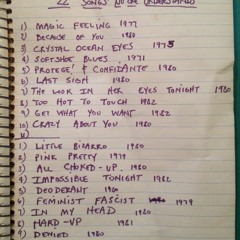 22 SONGS: NO ONE UNDERSTANDS
1) MAGIC FEELING 1977
2) BECAUSE OF YOU 1980
3) CRYSTAL OCEAN EYES 1975
4) SOFTSHOE BLUES 1971
5) PROTEGE' & CONFIDANTE 1980
6) LAST SIGH 1980
7) THE LOOK IN HER EYES TONIGHT 1980
8) TOO HOT TO TOUCH 1982
9) GET WHAT YOU WANT 1982
10) CRAZY ABOUT YOU 1980
1) LITTLE BIZARRO 1980
2) PINK PRETTY 1979
3) ALL CHOKED-UP. 1980
4) IMPOSSIBLE TONIGHT 1982
5) DEODERANT 1980
6) FEMINIST FASCIST 1979
7) IN MY HEAD 1980
8) HARD-UP 1981
9) DENIED 1980